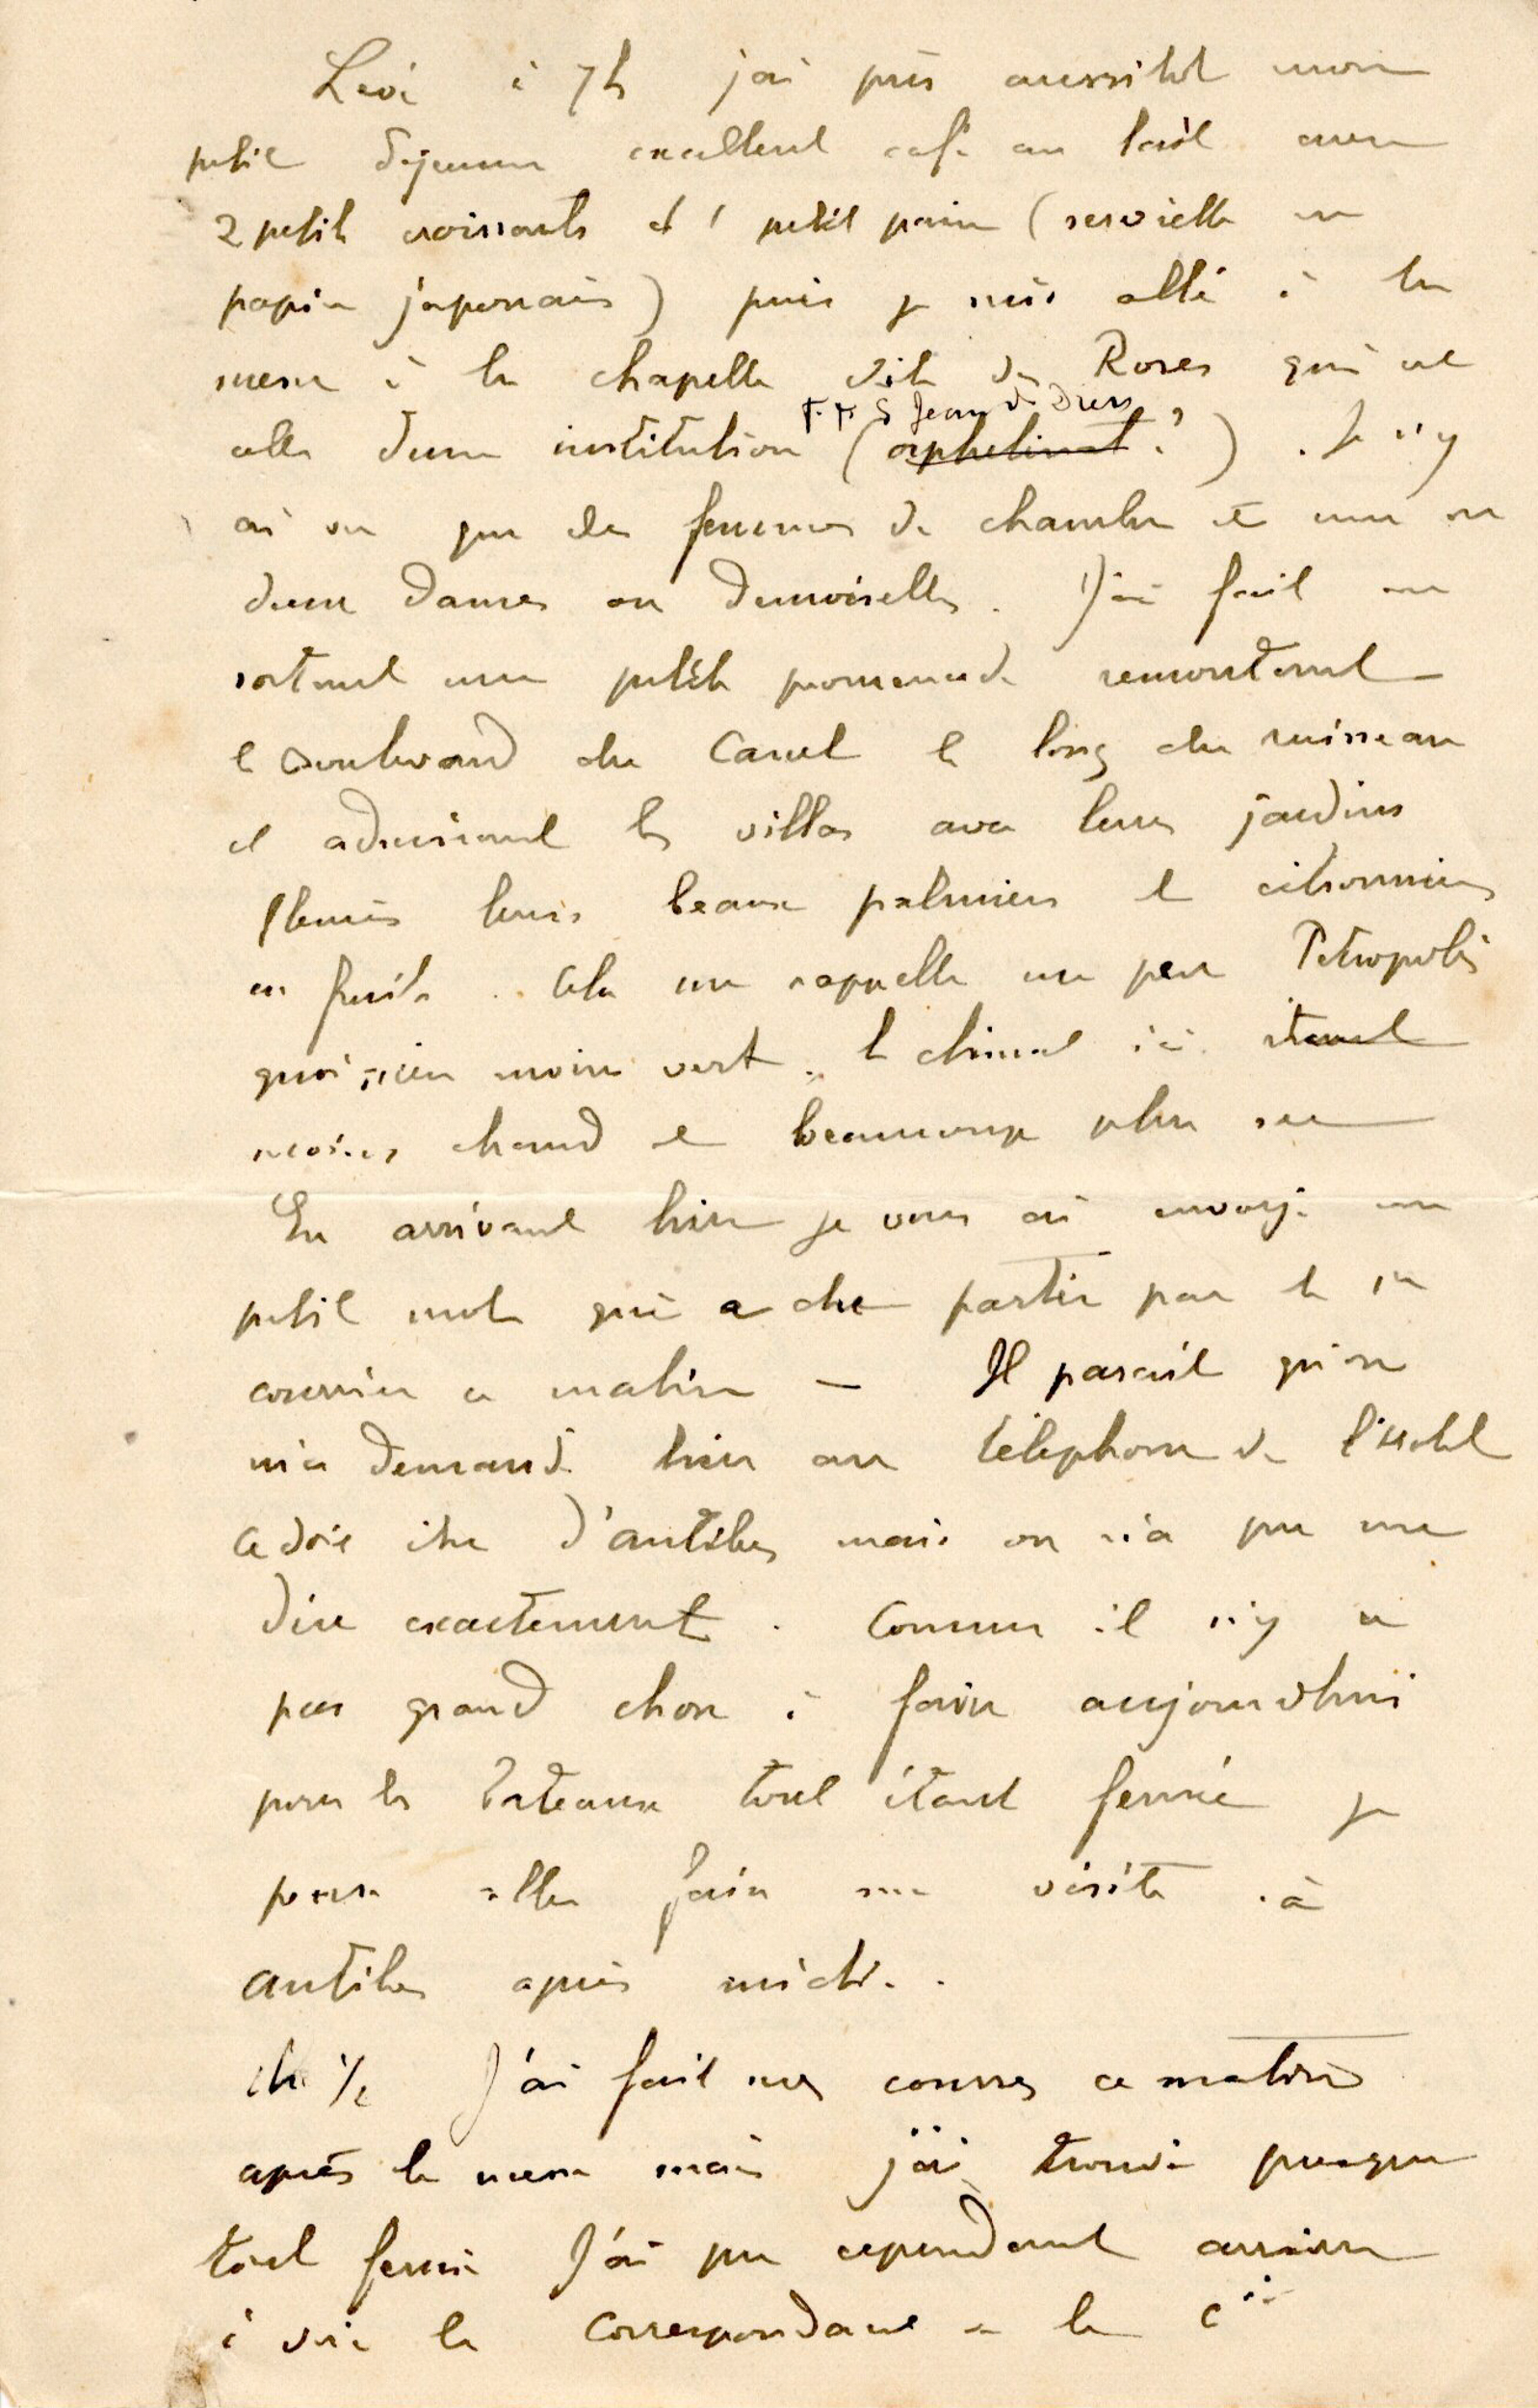 Levé à 7h j'ai pris aussitôt mon
petit déjeuner excellent café au lait avec
2 petits croissants et 1 petit pain (serviette en
papier japonais) puis je suis allé à la
messe à la chapelle dite des Roses qui est
F.F. S Jean de Dieu
celle d'une institution (orphelinat ?). Je n'y
ai vu que des femmes de chambre et une ou
deux dames ou demoiselles. J'ai fait en
sortant une petite promenade remontant
le Boulevard du Cannet le long du ruisseau
et admirant les villas avec leurs jardins
fleuris leurs beaux palmiers et citronniers
en fruits. Cela me rappelle un peu Petropolis
quoique bien moins vert. le climat ici étant
moins chaud et beaucoup plus sec
En arrivant hier je vous ai envoyé un
petit mot qui a du partir par le 1er
courrier ce matin — Il parait qu'on
m'a demandé hier au téléphone de l'Hotel
ce doit être d'Antibes mais on n'a pu me
dire exactement. Comme il n'y a
pas grand chose à faire aujourdhui
pour les bateaux tout étant fermé je
pense aller faire une visite à
Antibes après midi.
1h 1/2 J'ai fait mes courses ce matin
après la messe mais j'ai trouvé presque
tout fermé J'ai pu cependant arriver
à voir le correspondant de la Cie